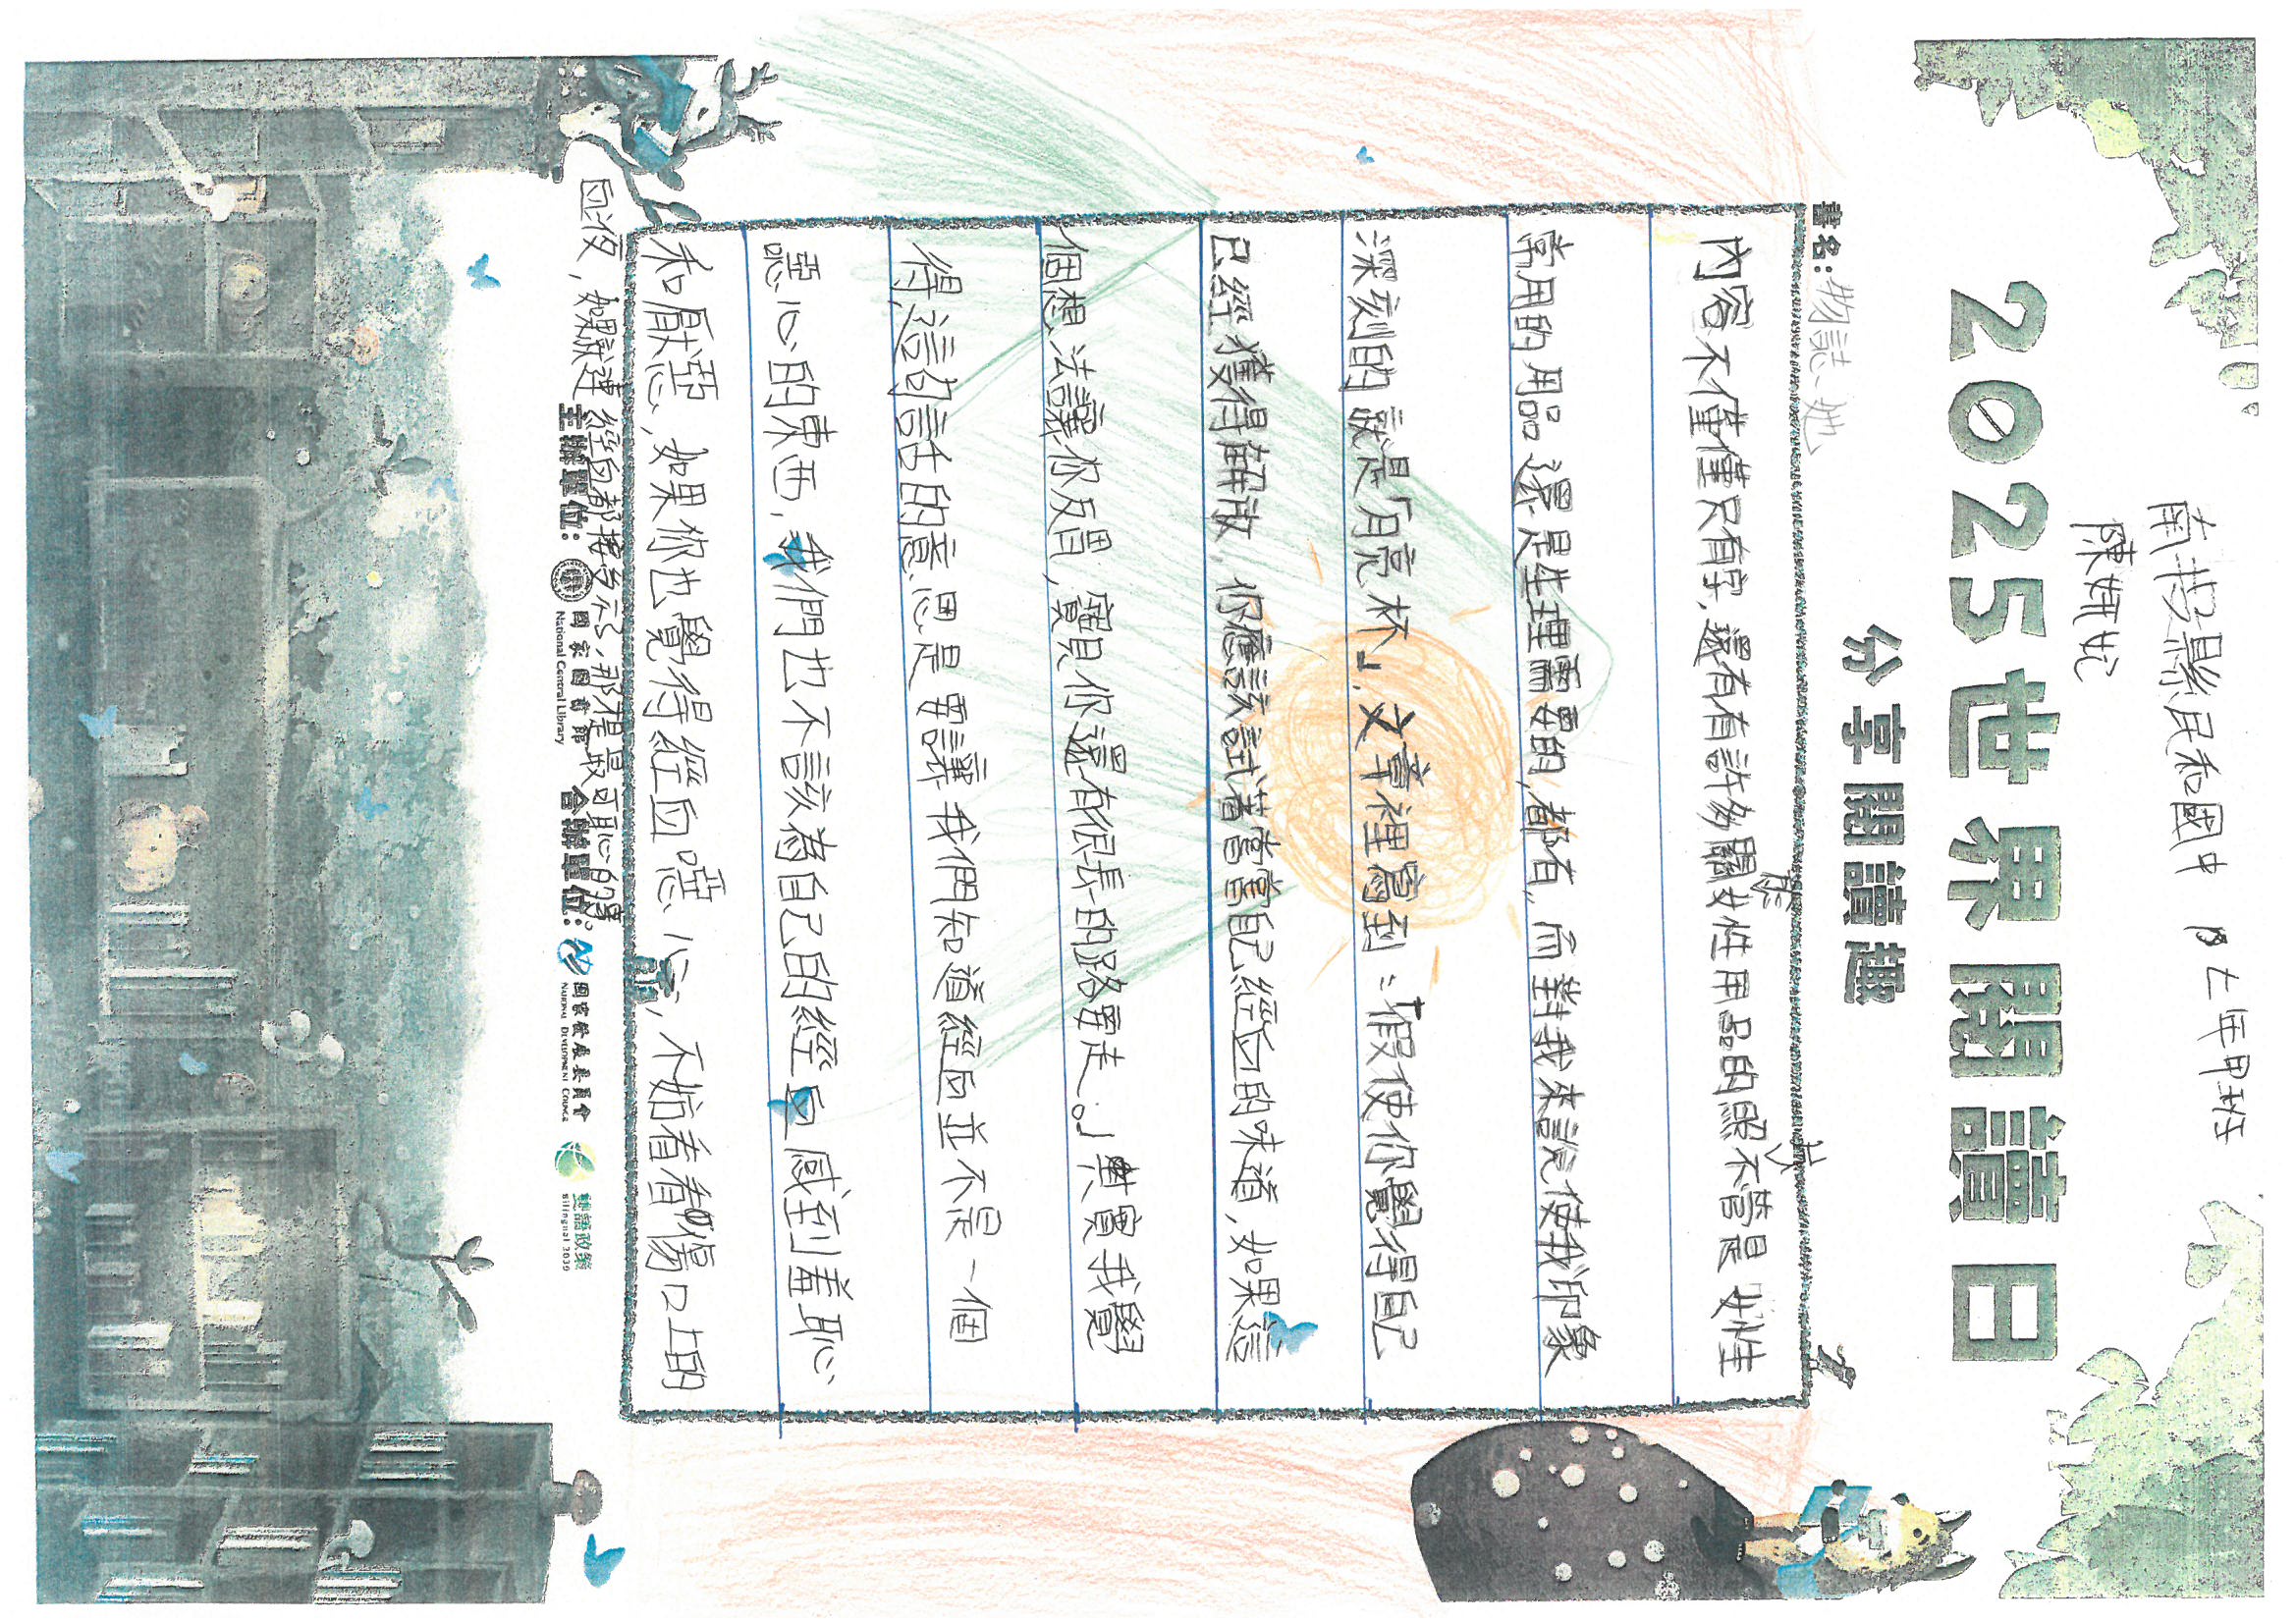 南投縣民和國中 七年甲班
陳姵妏
2025世界閱讀日
分享閱讀趣
書名:物誌、她
內容不僅僅只有字、還有有許多關於女性用品的照片不管是 女性
常用的用品 還是生理需要的,都有,而對我來說使我印象
深刻的就是「月亮杯」,文章裡寫到:「假使你覺得自己
已經獲得解放,你應該試著嘗嘗自己經血的味道,如果這
個想法讓你反胃,寶貝你還有很長的路要走。」其實我覺
得,這句話的意思是要讓我們知道經血並不是一個
噁心的東西,我們也不該為自己的經血感到羞恥
和厭惡、如果你也覺得經血噁心,不妨看看傷口上的
血液,如果說連經血都接受不了,那才是最可恥的事。
主辦單位:
國家圖書館
National Central Library
合辦單位:
國家發展委員會
NATIONAL DEVELOPMENT COUNCIL
雙語政策
Bilingual 2030